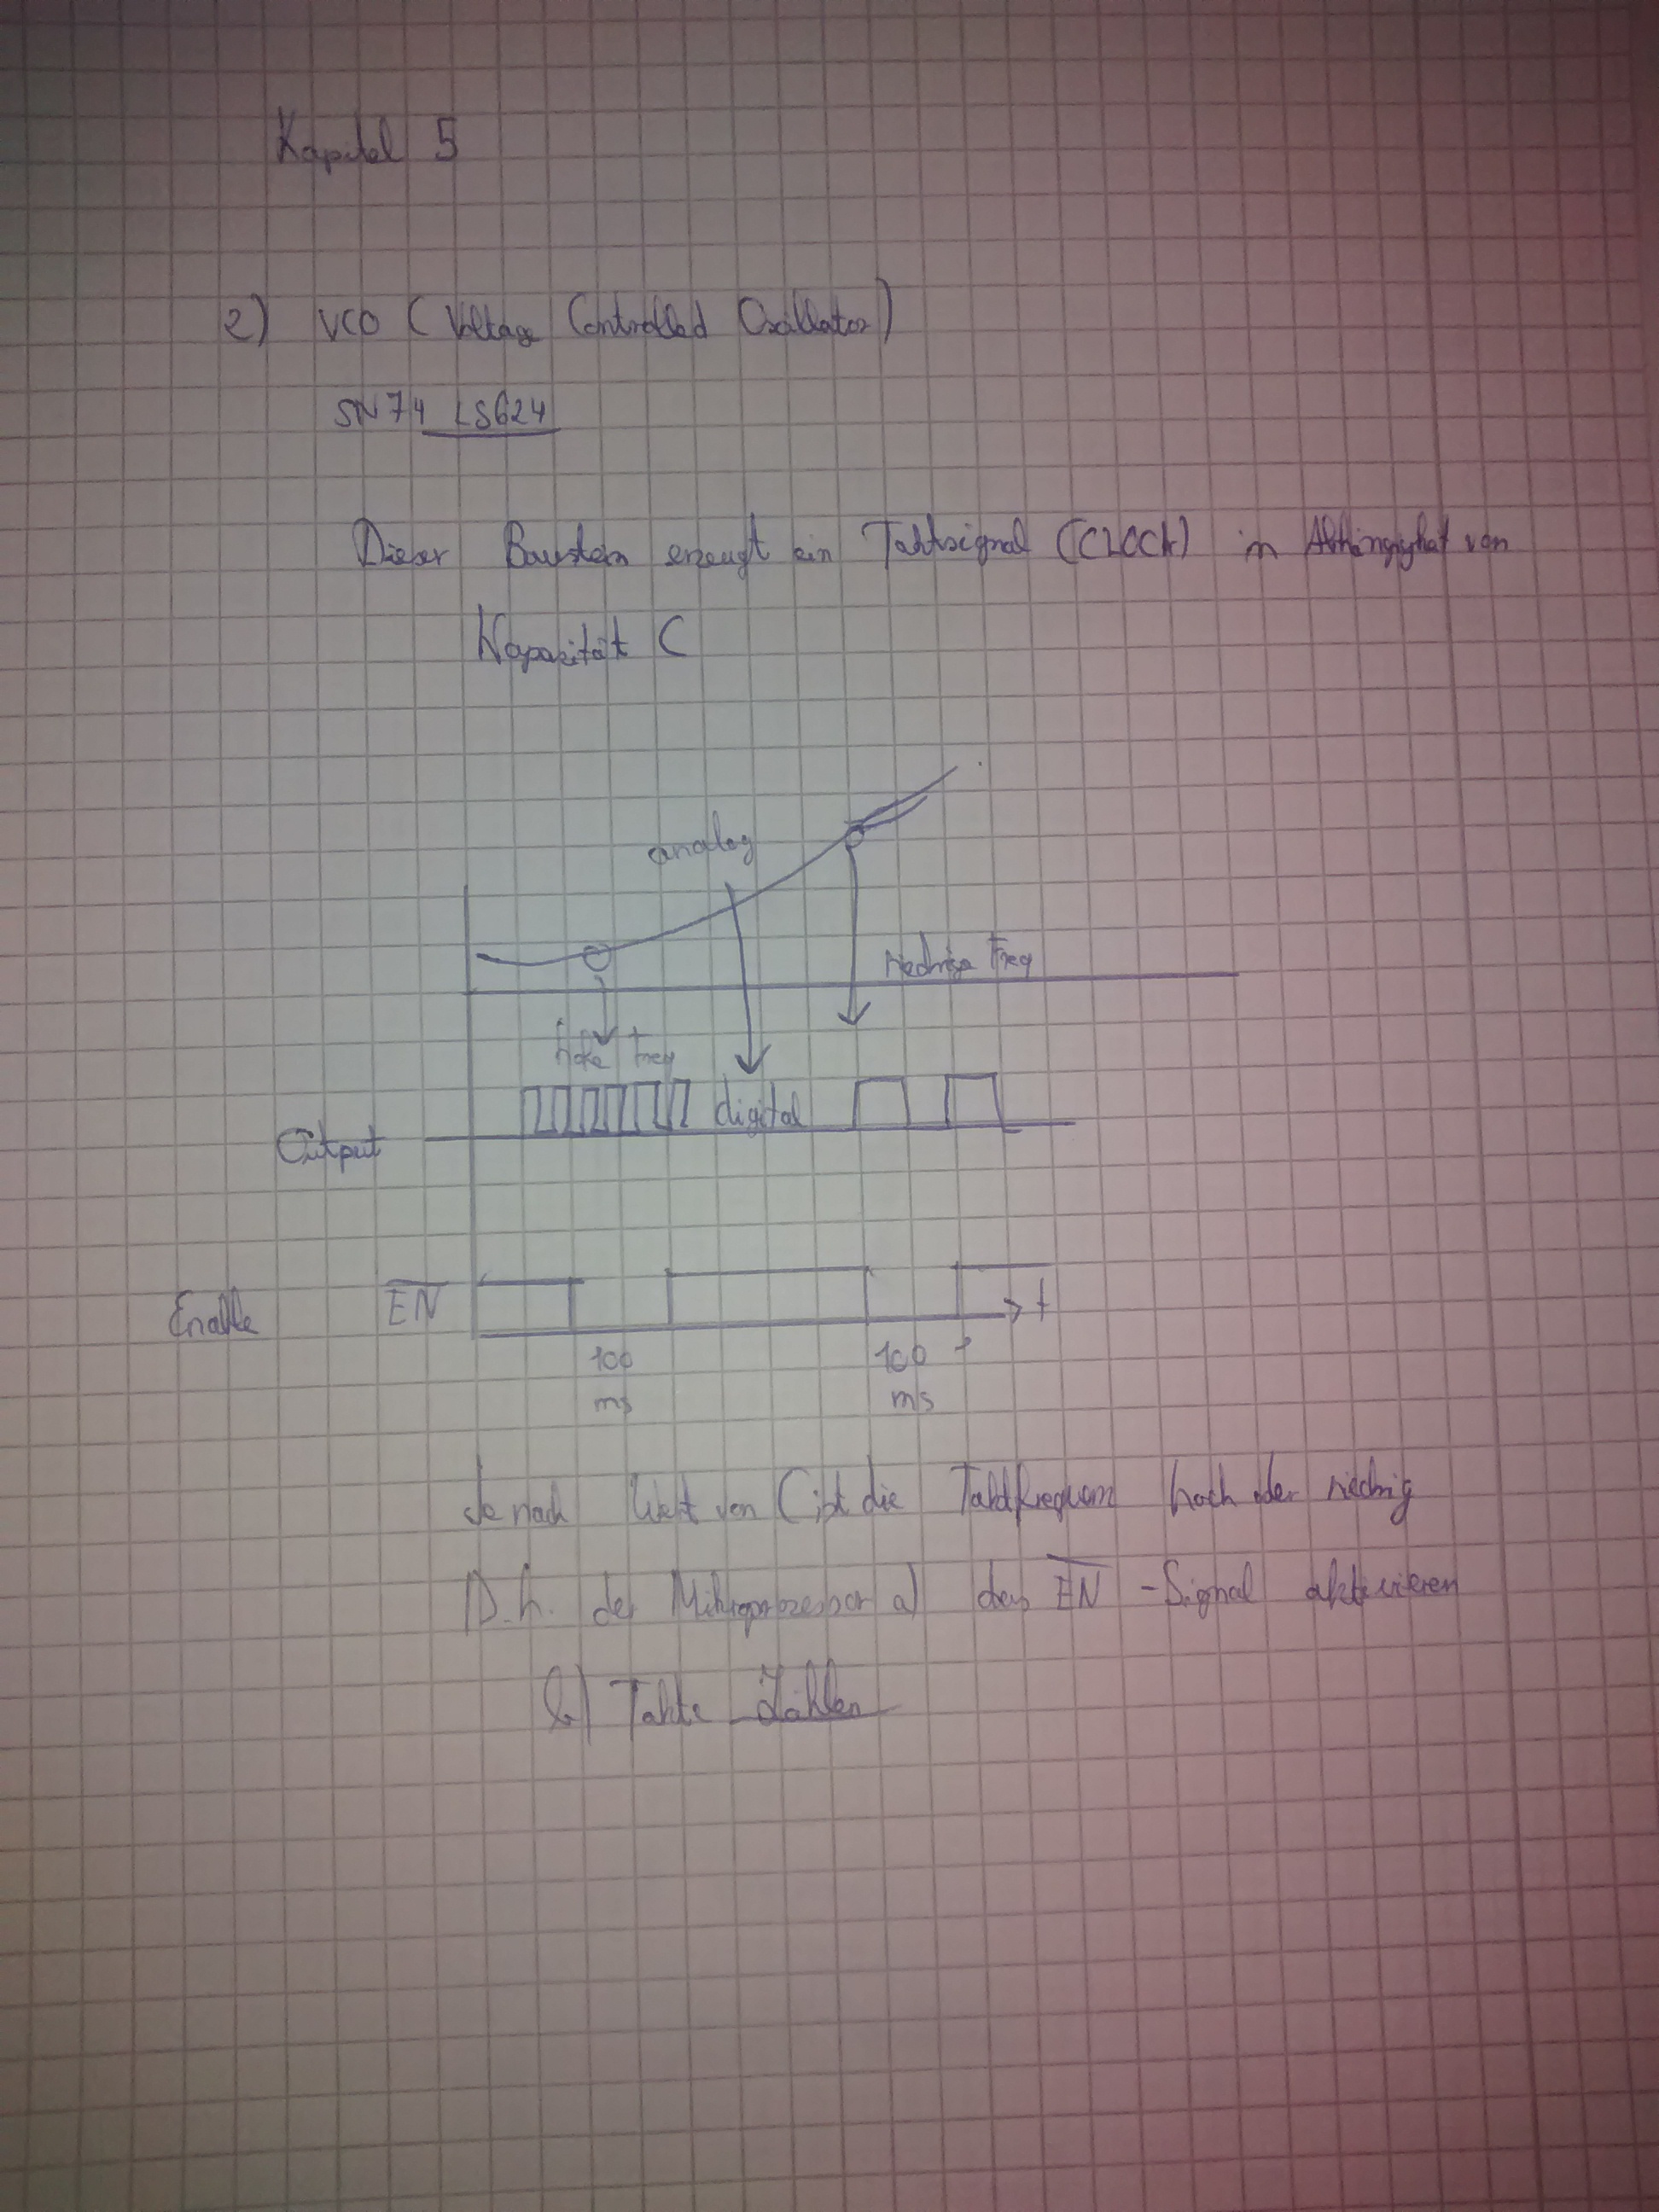 Kapitel 5
2) VCO (Voltage Controlled Oszillator)
SN74 LS624
Dieser Baustein erzeugt ein Taktsignal (CLOCK) in Abhängigkeit von
Kapazität C
analog
Niedrige Freq
hohe Freq
digital
Output
Enable EN t
100 100
ms ms
Je nach Wert von C ist die Taktfrequenz hoch oder niedrig
D.h. der Mikroprozessor a) das EN - Signal aktivieren
b) Takte zählen